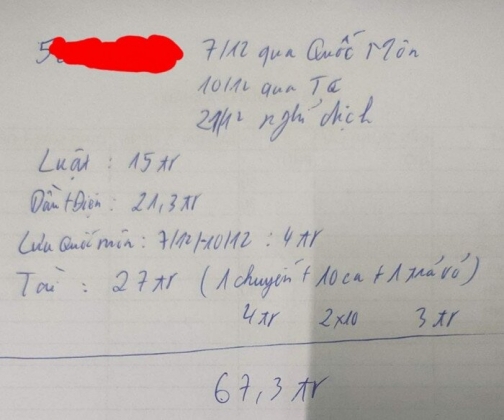 7/12 qua Quốc Môn
10/12 qua Ta
21/12 nghỉ dịch
Luật : 15tr
Dầu+Điện : 21,3tr
Lưu Quốc môn : 7/12/-10/12 : 4tr
Tài : 27tr (1 chuyến + 10 ca + 1 trả vỏ)
4tr 2x10 3tr
67,3 tr